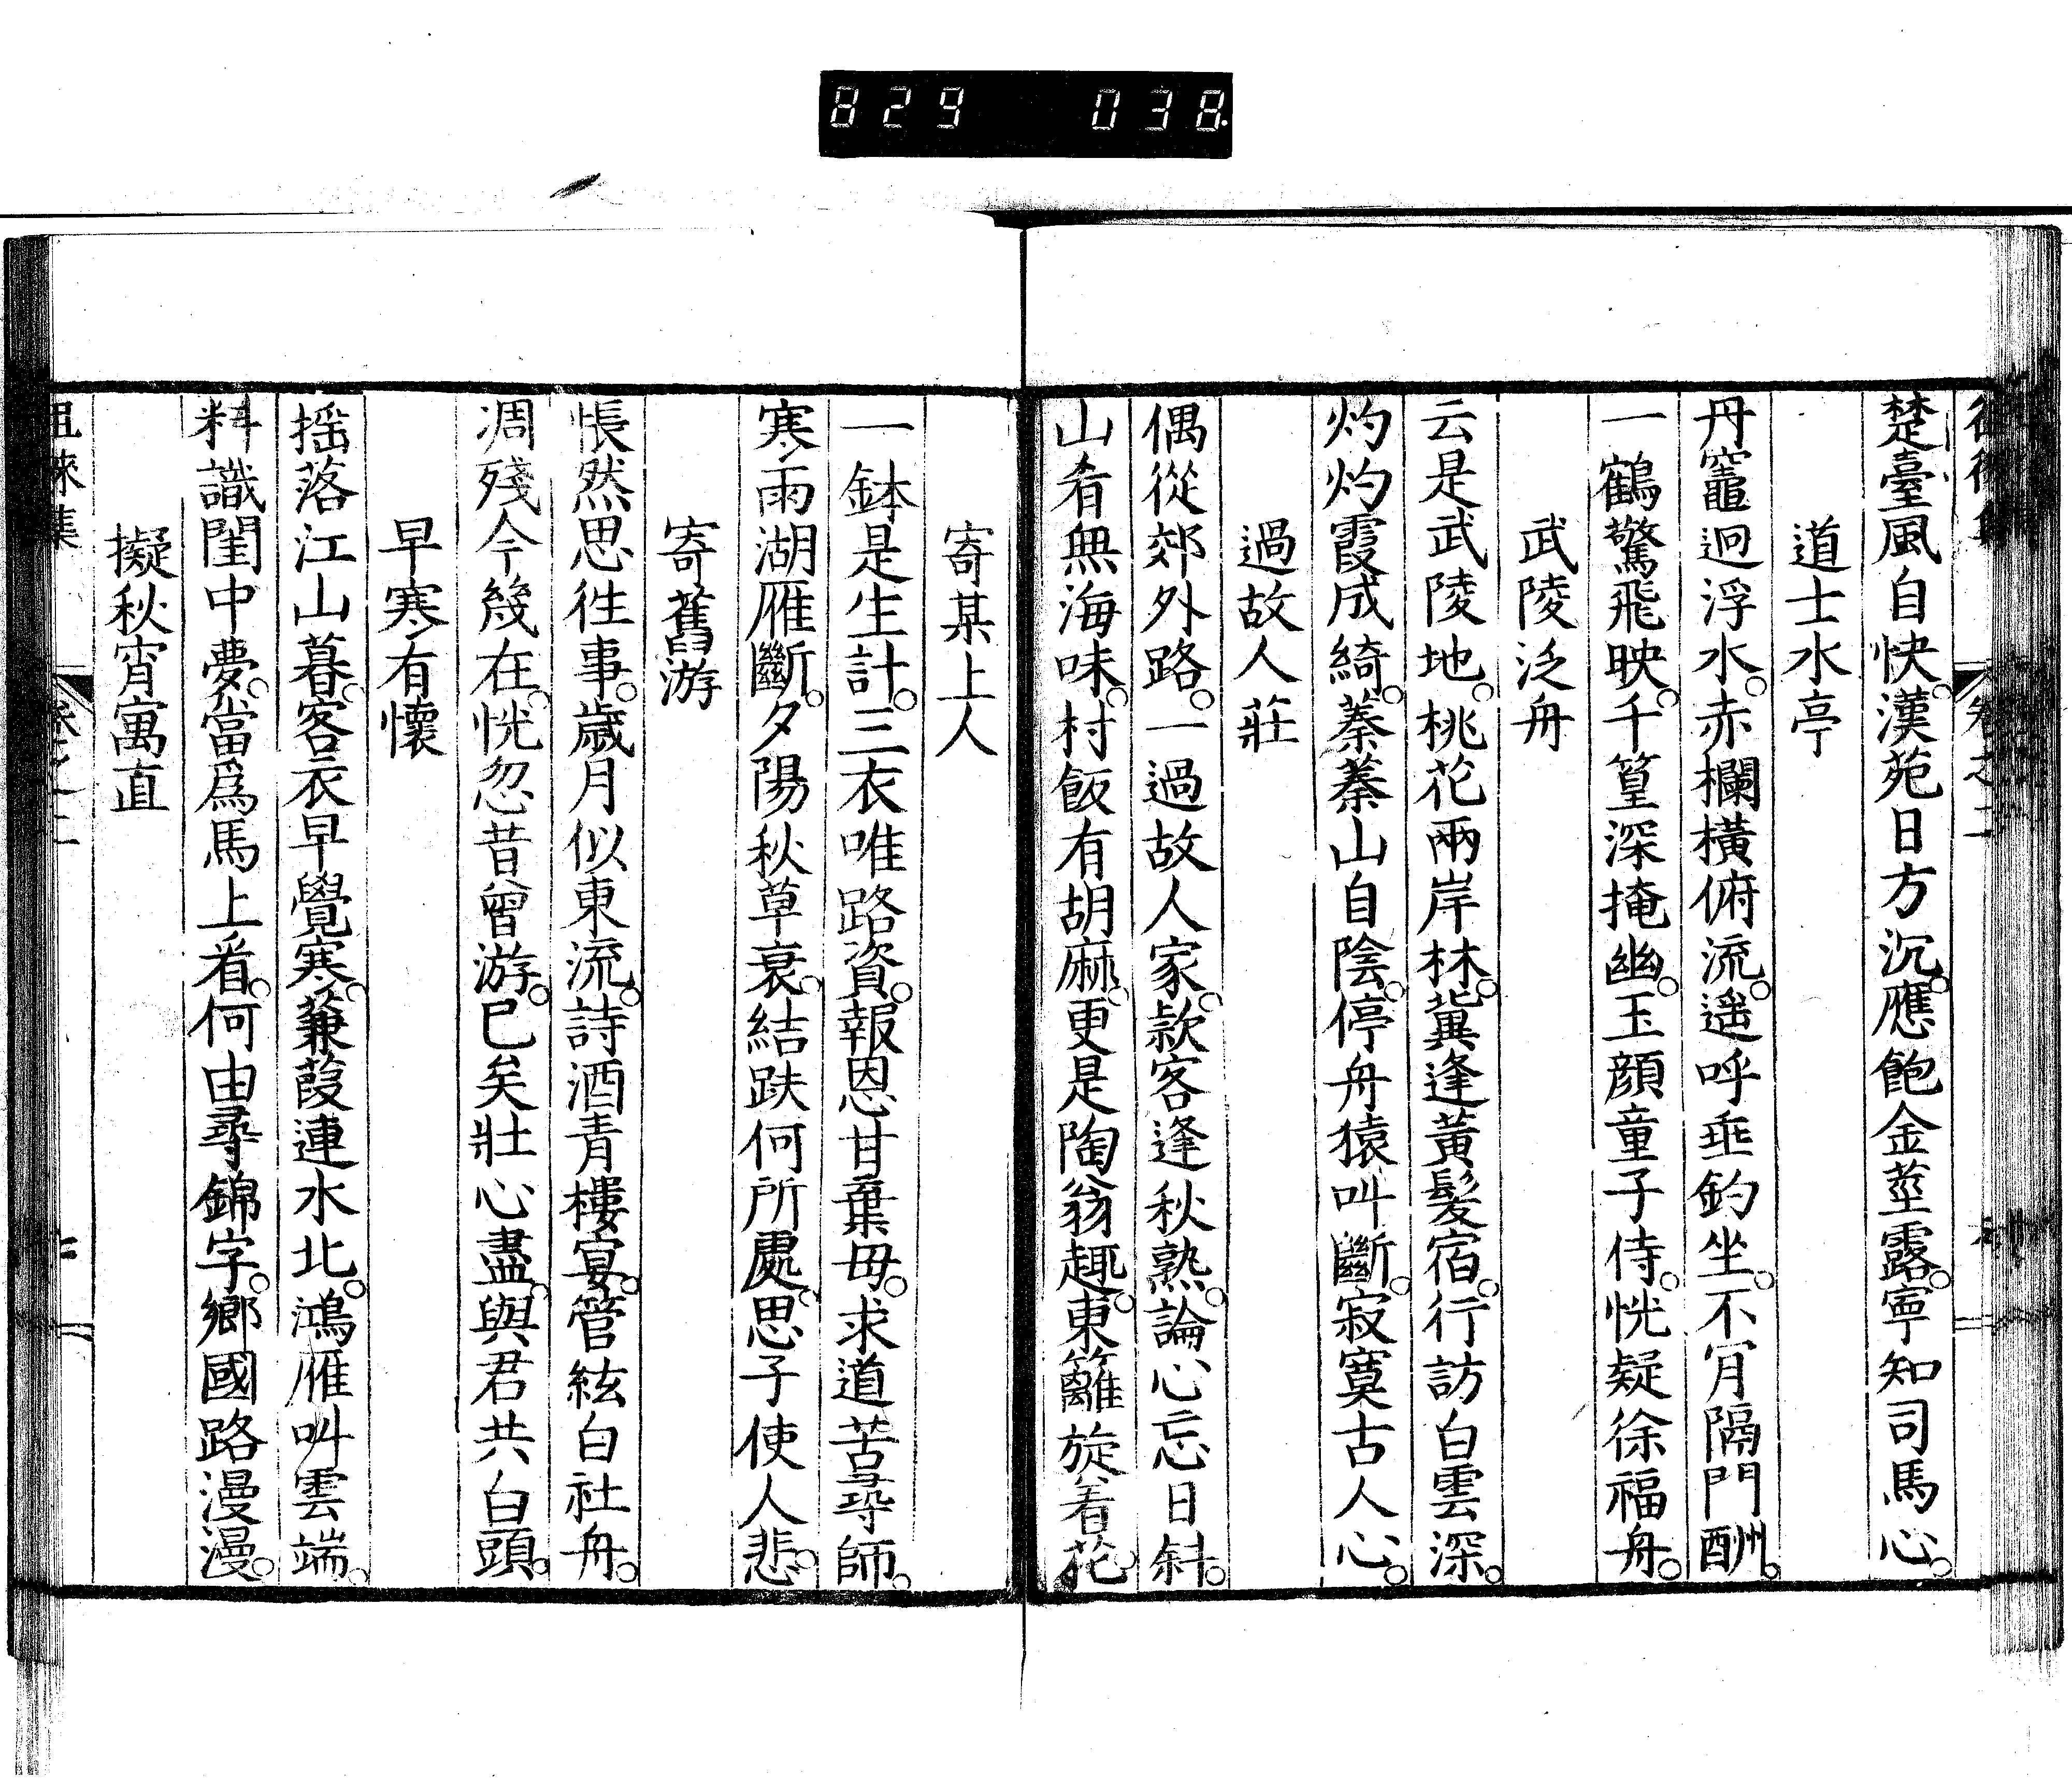 829 038
楚臺風自快。漢苑日方沉。應飽金莖露。寧知司馬心。
道士水亭
丹竈迥浮水。赤欄橫俯流。遥呼垂釣坐。不肎隔門酬。
一鶴驚飛映。千篁深掩幽。玉顏童子侍。恍疑徐福舟。
武陵泛舟
云是武陵地。桃花兩岸林。冀逢黃髮宿。行訪白雲深。
灼灼霞成綺。蓁蓁山自陰。停舟猿叫斷。寂寞古人心。
過故人莊
偶從郊外路。一過故人家。款客逢秋熟。論心忘日斜。
山肴無海味。村飯有胡麻。更是陶翁趣。東籬旋着花。
寄某上人
一鉢是生計。三衣唯路資。報恩甘棄毋。求道苦尋師。
寒雨湖雁斷。夕陽秋草衰。結趺何所處。思子使人悲。
寄舊游
悵然思往事。歳月似東流。詩酒青樓宴。管絃白社舟。
凋殘今幾在。恍忽昔曾游。已矣壯心盡。與君共白頭。
早寒有懷
揺落江山暮。客衣早覺寒。蒹葭連水北。鴻雁叫雲端。
料識閨中夢。當爲馬上看。何由尋錦字。鄉國路漫漫。
擬秋宵寓直
徂徠集 卷之二